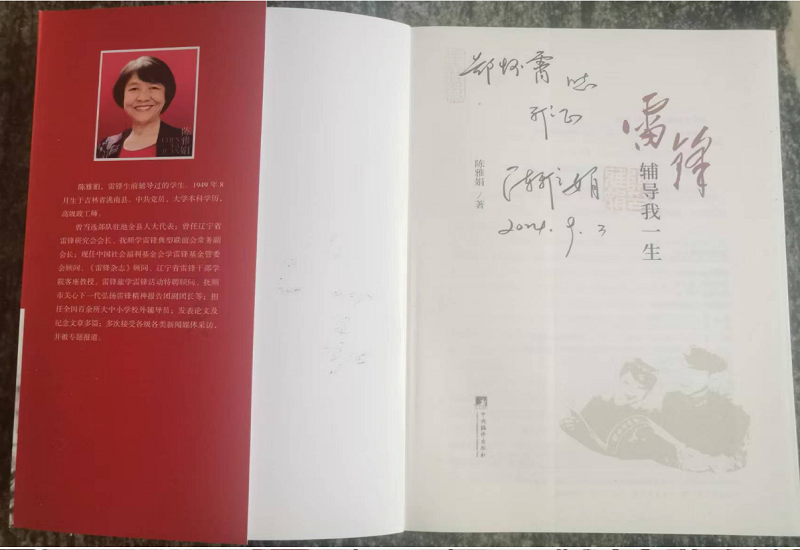 陈雅娟，雷锋生前辅导过的学生。1949年8
月生于吉林省洮南县，中共党员，大学本科学历，
高级政工师。
曾当选部队驻地金县人大代表；曾任辽宁省
雷锋研究会会长、抚顺学雷锋典型联谊会常务副
会长；现任中国社会福利基金会学雷锋基金管委
会顾问、《雷锋杂志》顾问、辽宁省雷锋干部学
院客座教授、雷锋旅学雷锋活动特聘顾问、抚顺
市关心下一代弘扬雷锋精神报告团副团长等；担
任全国百余所大中小学校外辅导员；发表论文及
纪念文章多篇；多次接受各级各类新闻媒体采访，
并被专题报道。
斧正
2024.9.3
雷锋
辅导我一生
陈雅娟／著
中央编译出版社